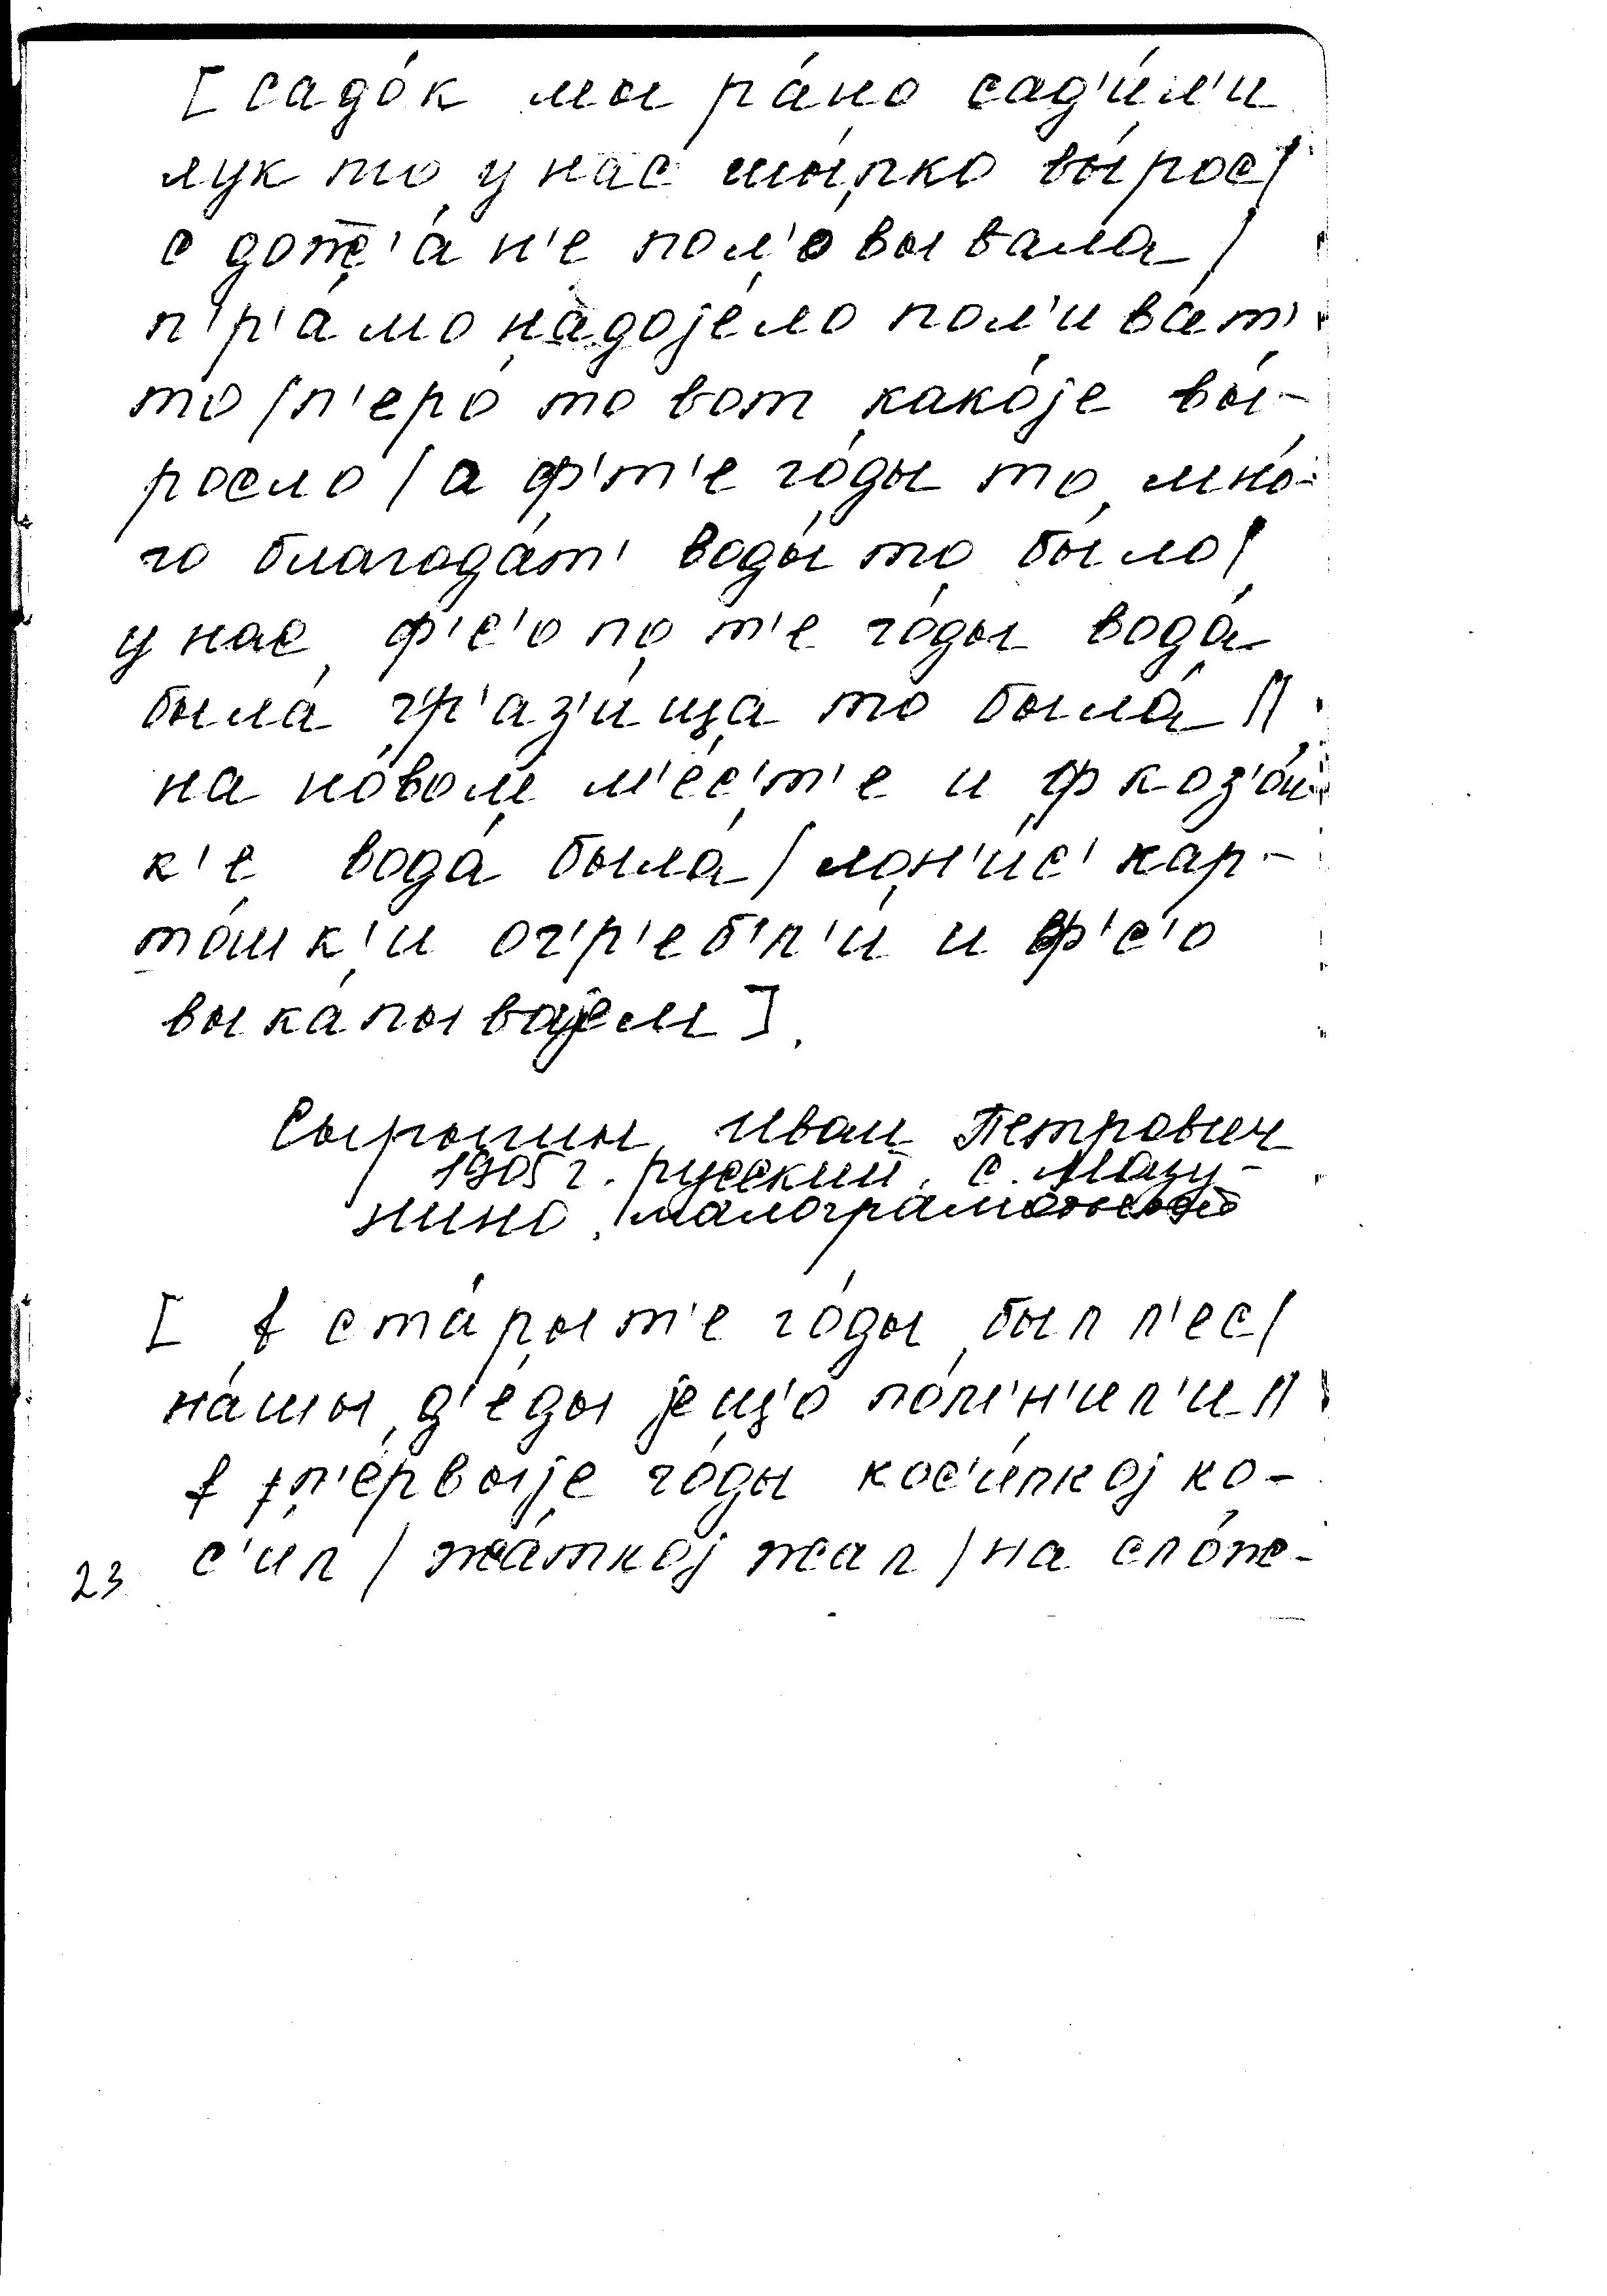 [садо́к мы ра́но сад'и́л'и
лук то у нас шы́пко вы́рос/
с дожж'а́ н'е пол'о́вывала/
п'р'а́мо надоjе́ло пол'ива́т'
то/п'еро́ то вот како́jе вы́-
росло/а ф'т'е го́ды то мно́-
го благода́т' воды́ то бы́ло/
у нас ф'с'о по т'е го́ды вода́
была́ г'р'аз'и́ща то была́//
на но́вом м'е́с'т'е и ф коз'о́н
к'е вода́ была́/лон'и́с' кар-
то́шк'и ог'р'еб'л'и́ и ф'с'о
выка́пываjем].
Иван Петрович
1905 г. русский, с. Мазу-
нино,
[ f ста́ры т'е го́ды был л'ес/
на́шы д'е́ды jещ'о́ по́м'н'ил'и//
f п'е́рвыjе го́ды кос'и́лкоj ко-
с'и́л/жа́ткоj жал/на сло́ж-
23